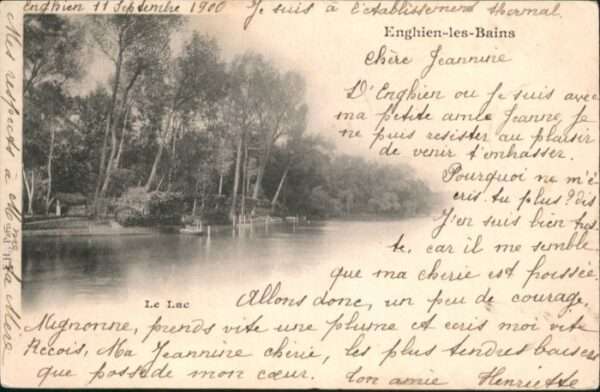 Enghien 11 Septembre 1900 Je suis à l'établissement thermal.
Enghien-les-Bains
Chère Jeannine
D'Enghien ou Je suis avec
ma petite amie Jeanne, Je
ne puis resister au plaisir
de venir t'embrasser.
Pourquoi ne m'é
cris-tu plus? Dis
J'en suis bien tris
te, car il me semble
que ma cherie est froissée.
Allons donc, un peu de courage,
Le Lac
Mignonne, prends vite une plume et ecris moi vite
Recois, Ma Jeannine chérie, les plus tendres baisers
que possède mon cœur. ton amie Henriette
Mes respects à Mme ta Mère